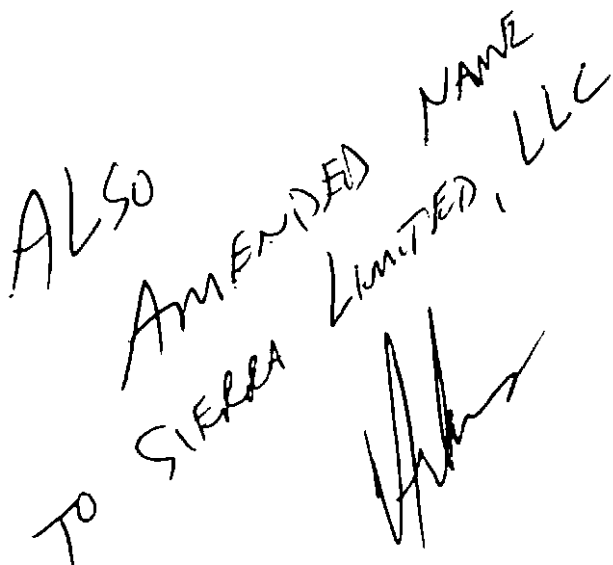 ALSO
AMENDED NAME
TO SIERRA LIMITED, LLC